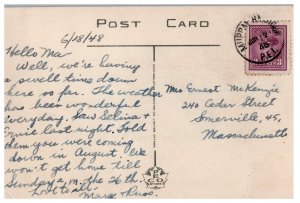 POST CARD
6/18/48
Hello Ma
Well, we're having
a swell time down
here so far. The weather
has been wonderful
everyday. Saw Selina &
Ernie last night. Told
them you were coming
down in August. We
won't get home till
Sunday a.m. the 26 th.
Love to all.
Marie & Russ.
Mrs Ernest McKenzie
240 Cedar Street
Somerville, 45,
Massachusetts
MURRAY
48
P.E.I.